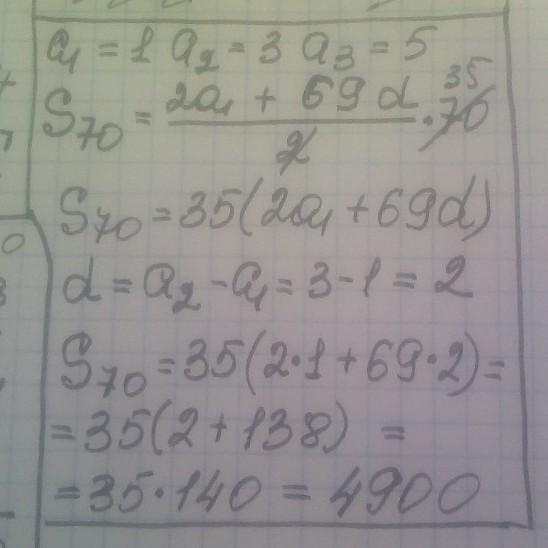 a₁ = 1 a₂ = 3 a₃ = 5
S₇₀ = (2a₁ + 69d)/2 · 70 35
S₇₀ = 35(2a₁ + 69d)
d = a₂ - a₁ = 3 - 1 = 2
S₇₀ = 35(2·1 + 69·2) =
= 35(2 + 138) =
= 35·140 = 4900